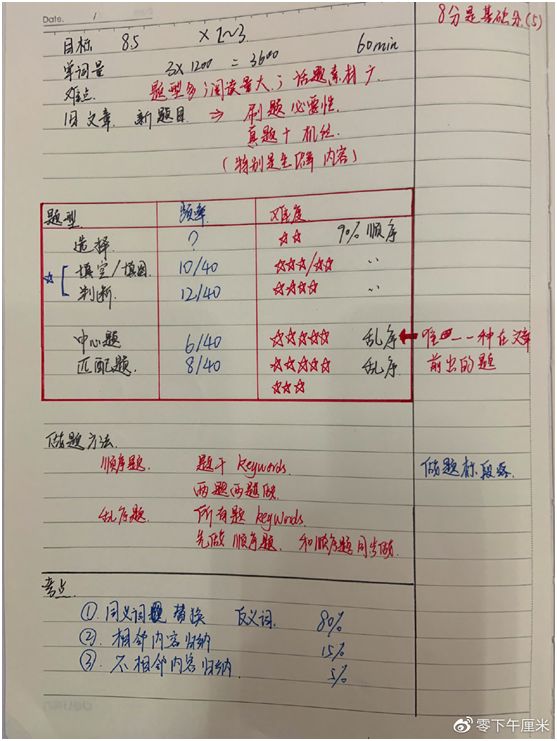 Date. /
8分是基础分(5)
目标 8.5 × 1~3 60min
单词量 3×1200 = 3600
难点 题型多;阅读量大;话题素材广
旧文章 新题目 ⇒ 刷题必要性
真题+机经
(特别是生僻内容)
题型 频率 难度
选择 ? ☆☆ 90% 顺序
☆ 填空/填图 10/40 ☆☆☆/☆☆ ″
判断 12/40 ☆☆☆☆ ″
中心题 6/40 ☆☆☆☆☆ 乱序 ← 唯一一种在文章
匹配题 8/40 ☆☆☆☆☆ 乱序 前出的题
☆☆☆
做题方法
顺序题 题干 keywords 做题标段落
两题两题做
乱序题 所有题 keywords
先做顺序题 和顺序题同步做
考点
① 同义词替换 反义词 80%
② 相邻内容归纳 15%
③ 不相邻内容归纳 5%
零下午厘米